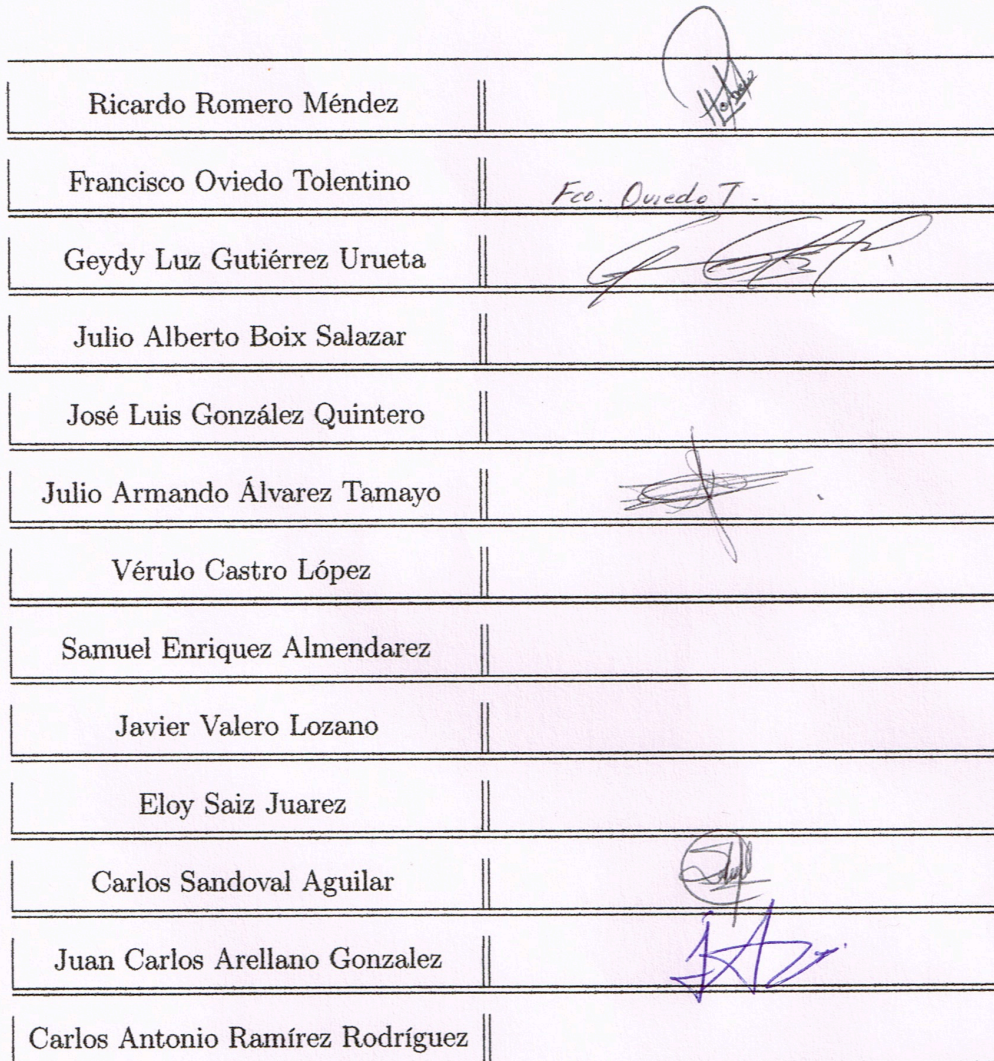 Ricardo Romero Méndez
Francisco Oviedo Tolentino
Fco. Oviedo T.
Geydy Luz Gutiérrez Urueta
Julio Alberto Boix Salazar
José Luis González Quintero
Julio Armando Álvarez Tamayo
Vérulo Castro López
Samuel Enriquez Almendarez
Javier Valero Lozano
Eloy Saiz Juarez
Carlos Sandoval Aguilar
Juan Carlos Arellano Gonzalez
Carlos Antonio Ramírez Rodríguez